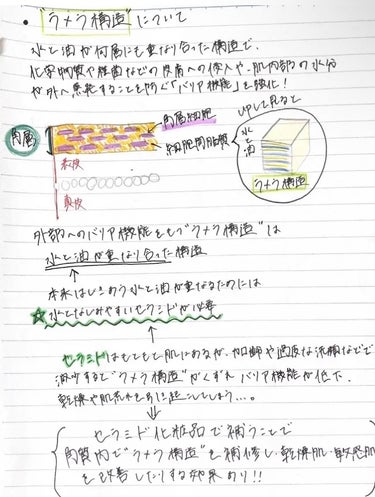 • "ラメラ構造" について
水と油が何層にも重なり合った構造で、
化学物質や雑菌などの皮膚への侵入や、肌内部の水分
が外へ蒸発することを防ぐ「バリア機能」を強化!
角層
角層細胞
細胞間脂質
表皮
真皮
UPして見ると
水と油
ラメラ構造
外部へのバリア機能をもつ"ラメラ構造"は
水と油が重なり合った構造
本来はじきあう水と油が重なるためには
☆水となじみやすいセラミドが必要
セラミドはもともと肌にあるが、加齢や過度な洗顔などで
減少すると"ラメラ構造"がくずれ バリア機能が低下。
乾燥や肌荒れを引き起こしてしまう…。
セラミド化粧品で補うことで
角質内で"ラメラ構造"を補修し、乾燥肌・敏感肌
を改善したりする効果あり!!